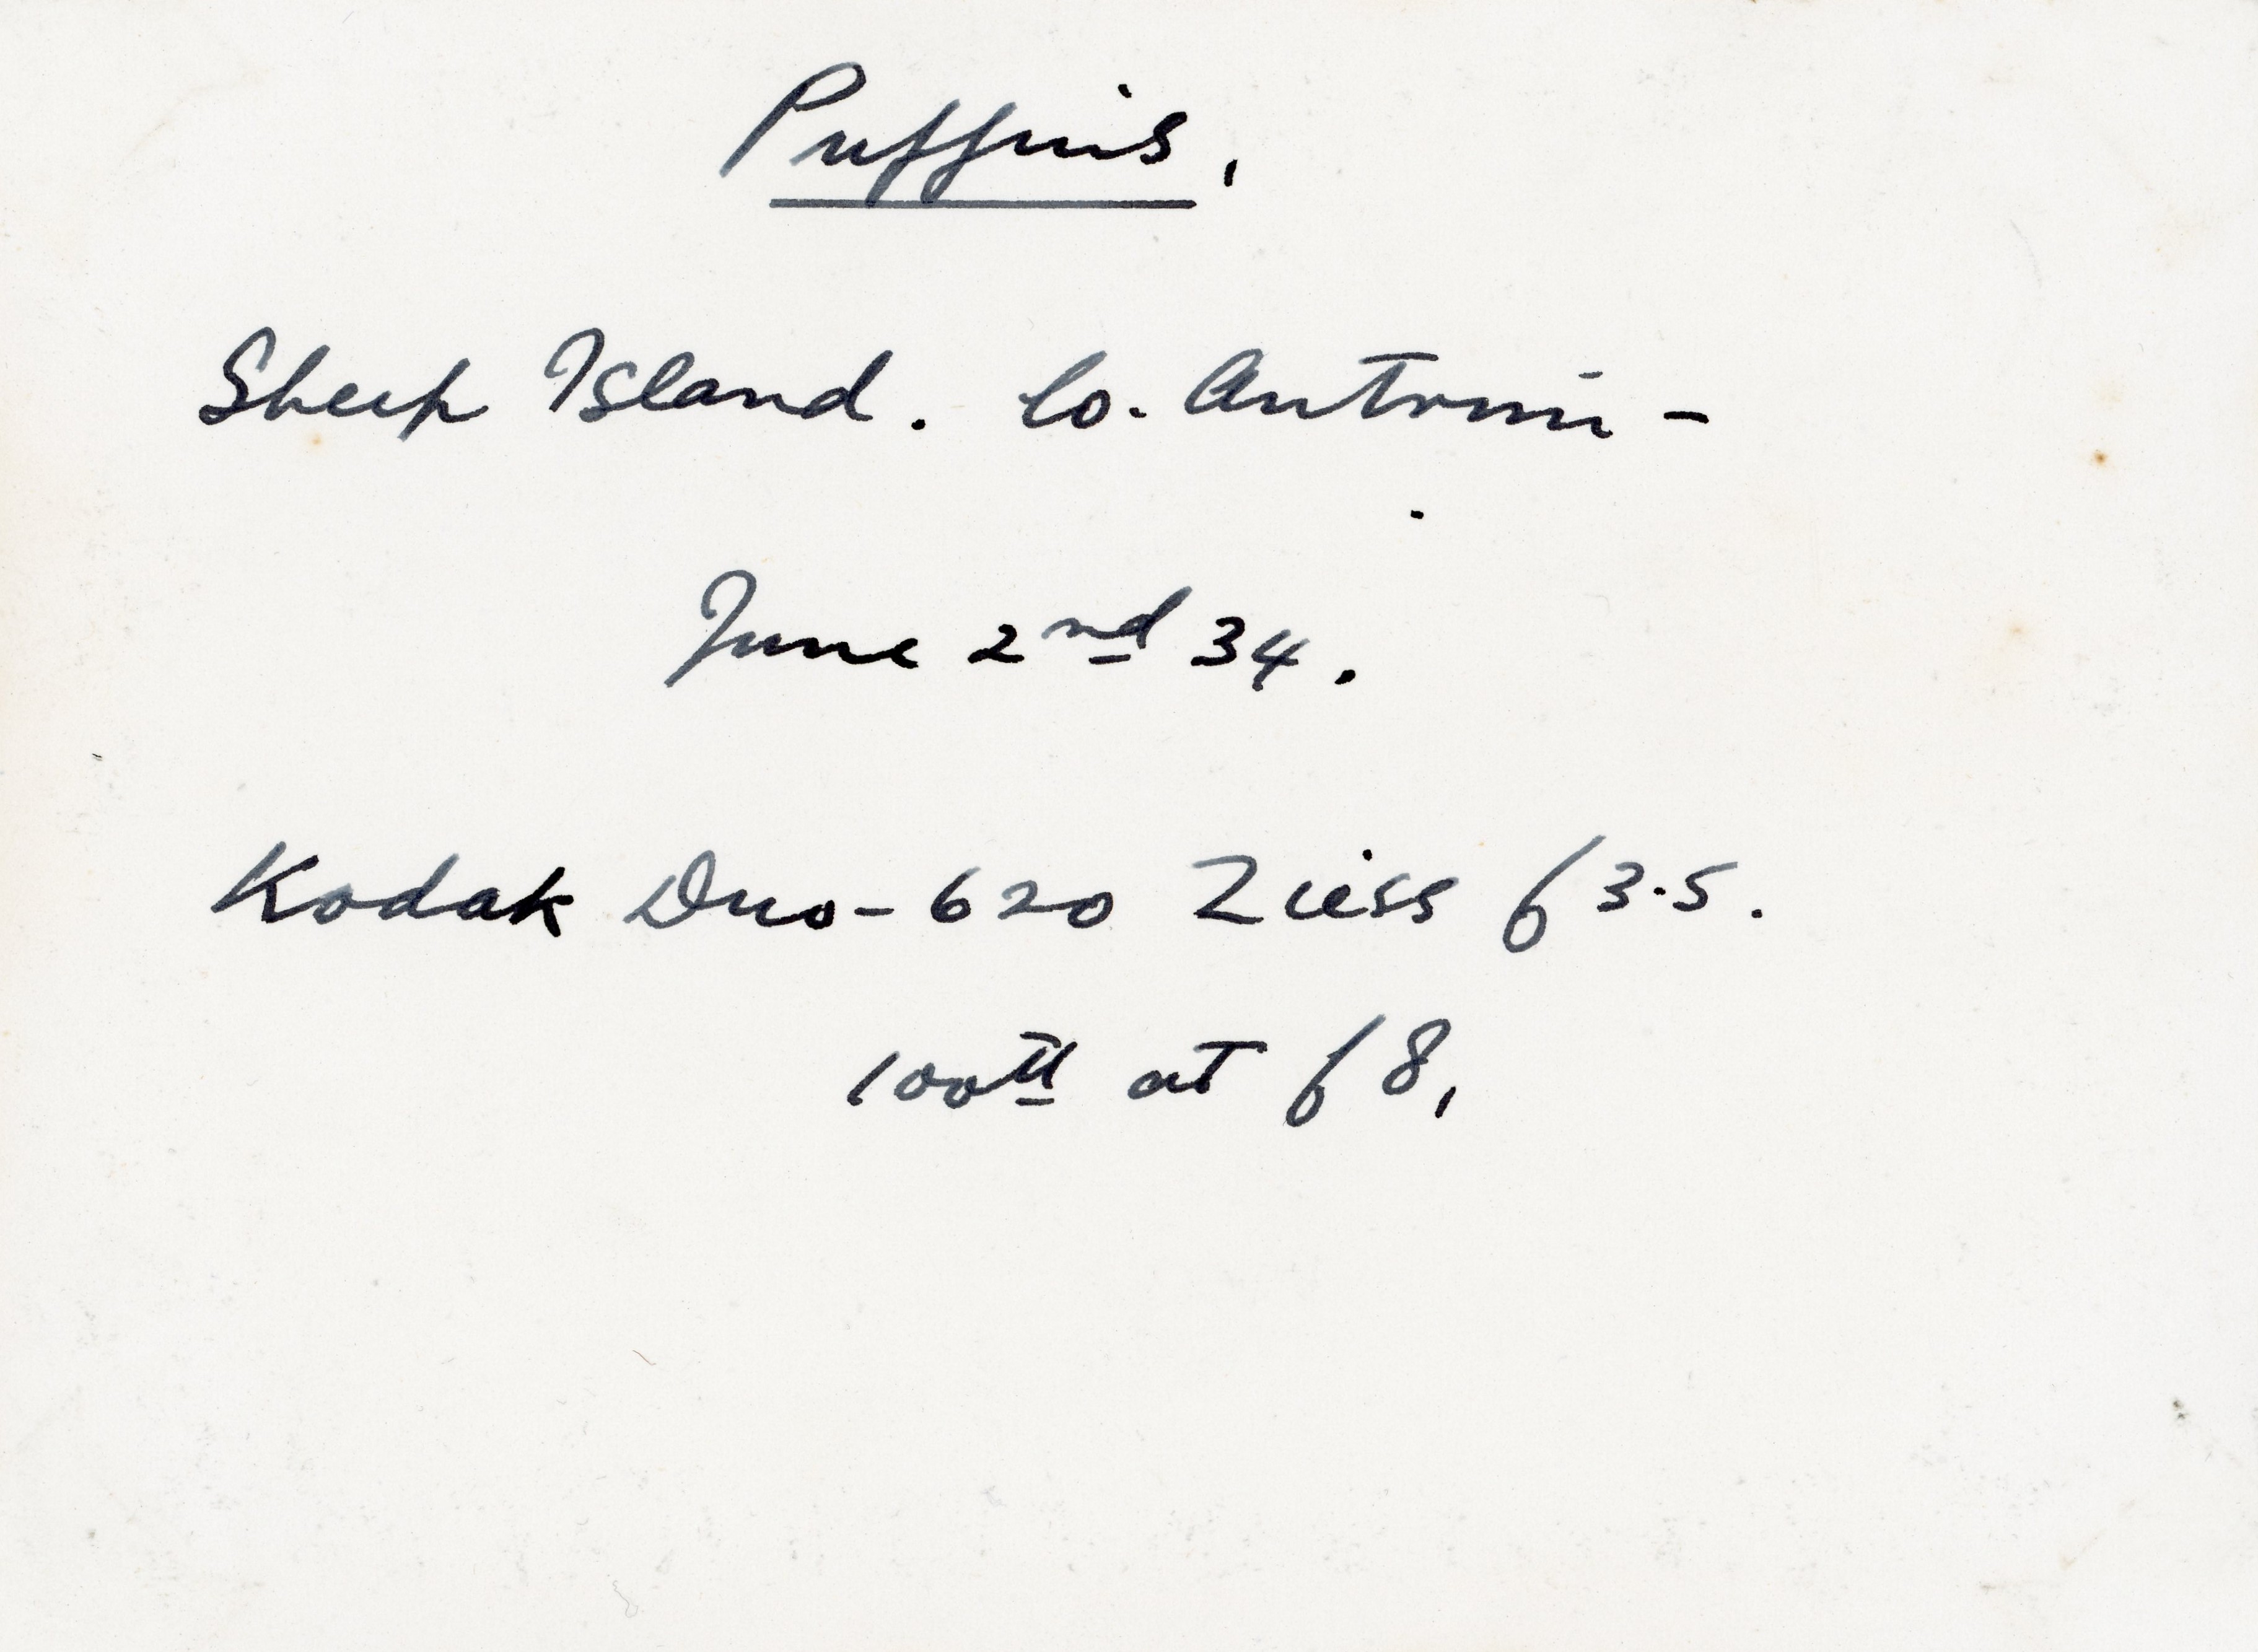 Puffins.
Sheep Island. Co. Antrim -
June 2nd 34.
Kodak Duo-620 Ziess f3.5.
100th at f8.